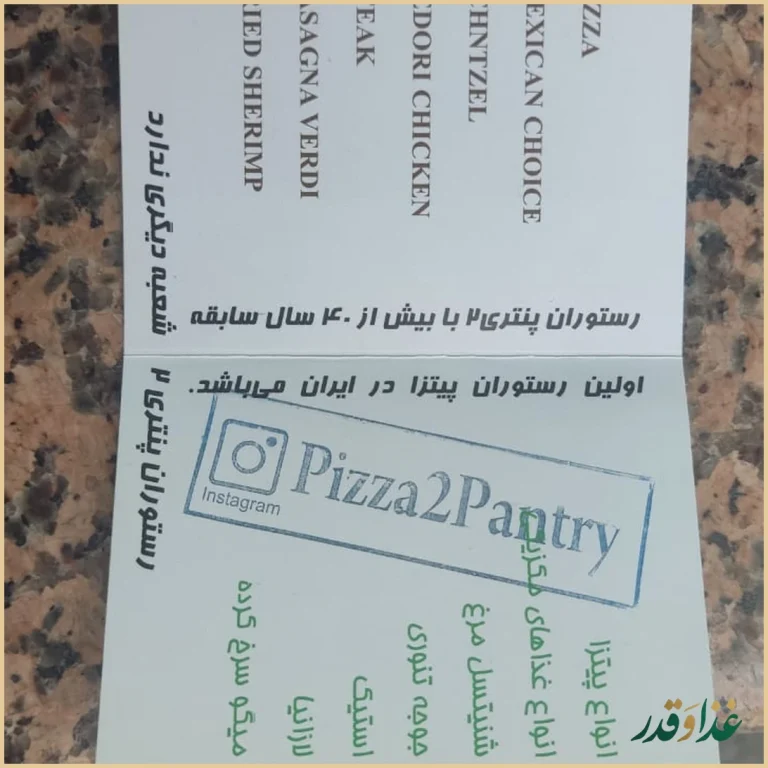 ZZA
EXICAN CHOICE
CHNTZEL
EDORI CHICKEN
EAK
ASAGNA VERDI
IED SHERIMP
رستوران پنتری۲ با بیش از ۴۰ سال سابقه
اولین رستوران پیتزا در ایران می‌باشد.
رستوران پنتری ۲ شعبه دیگری ندارد
Pizza2Pantry
Instagram
انواع پیتزا
انواع غذاهای مکزیکی
شنیتسل مرغ
جوجه تنوری
استیک
لازانیا
میگو سرخ کرده
غذا و قدر